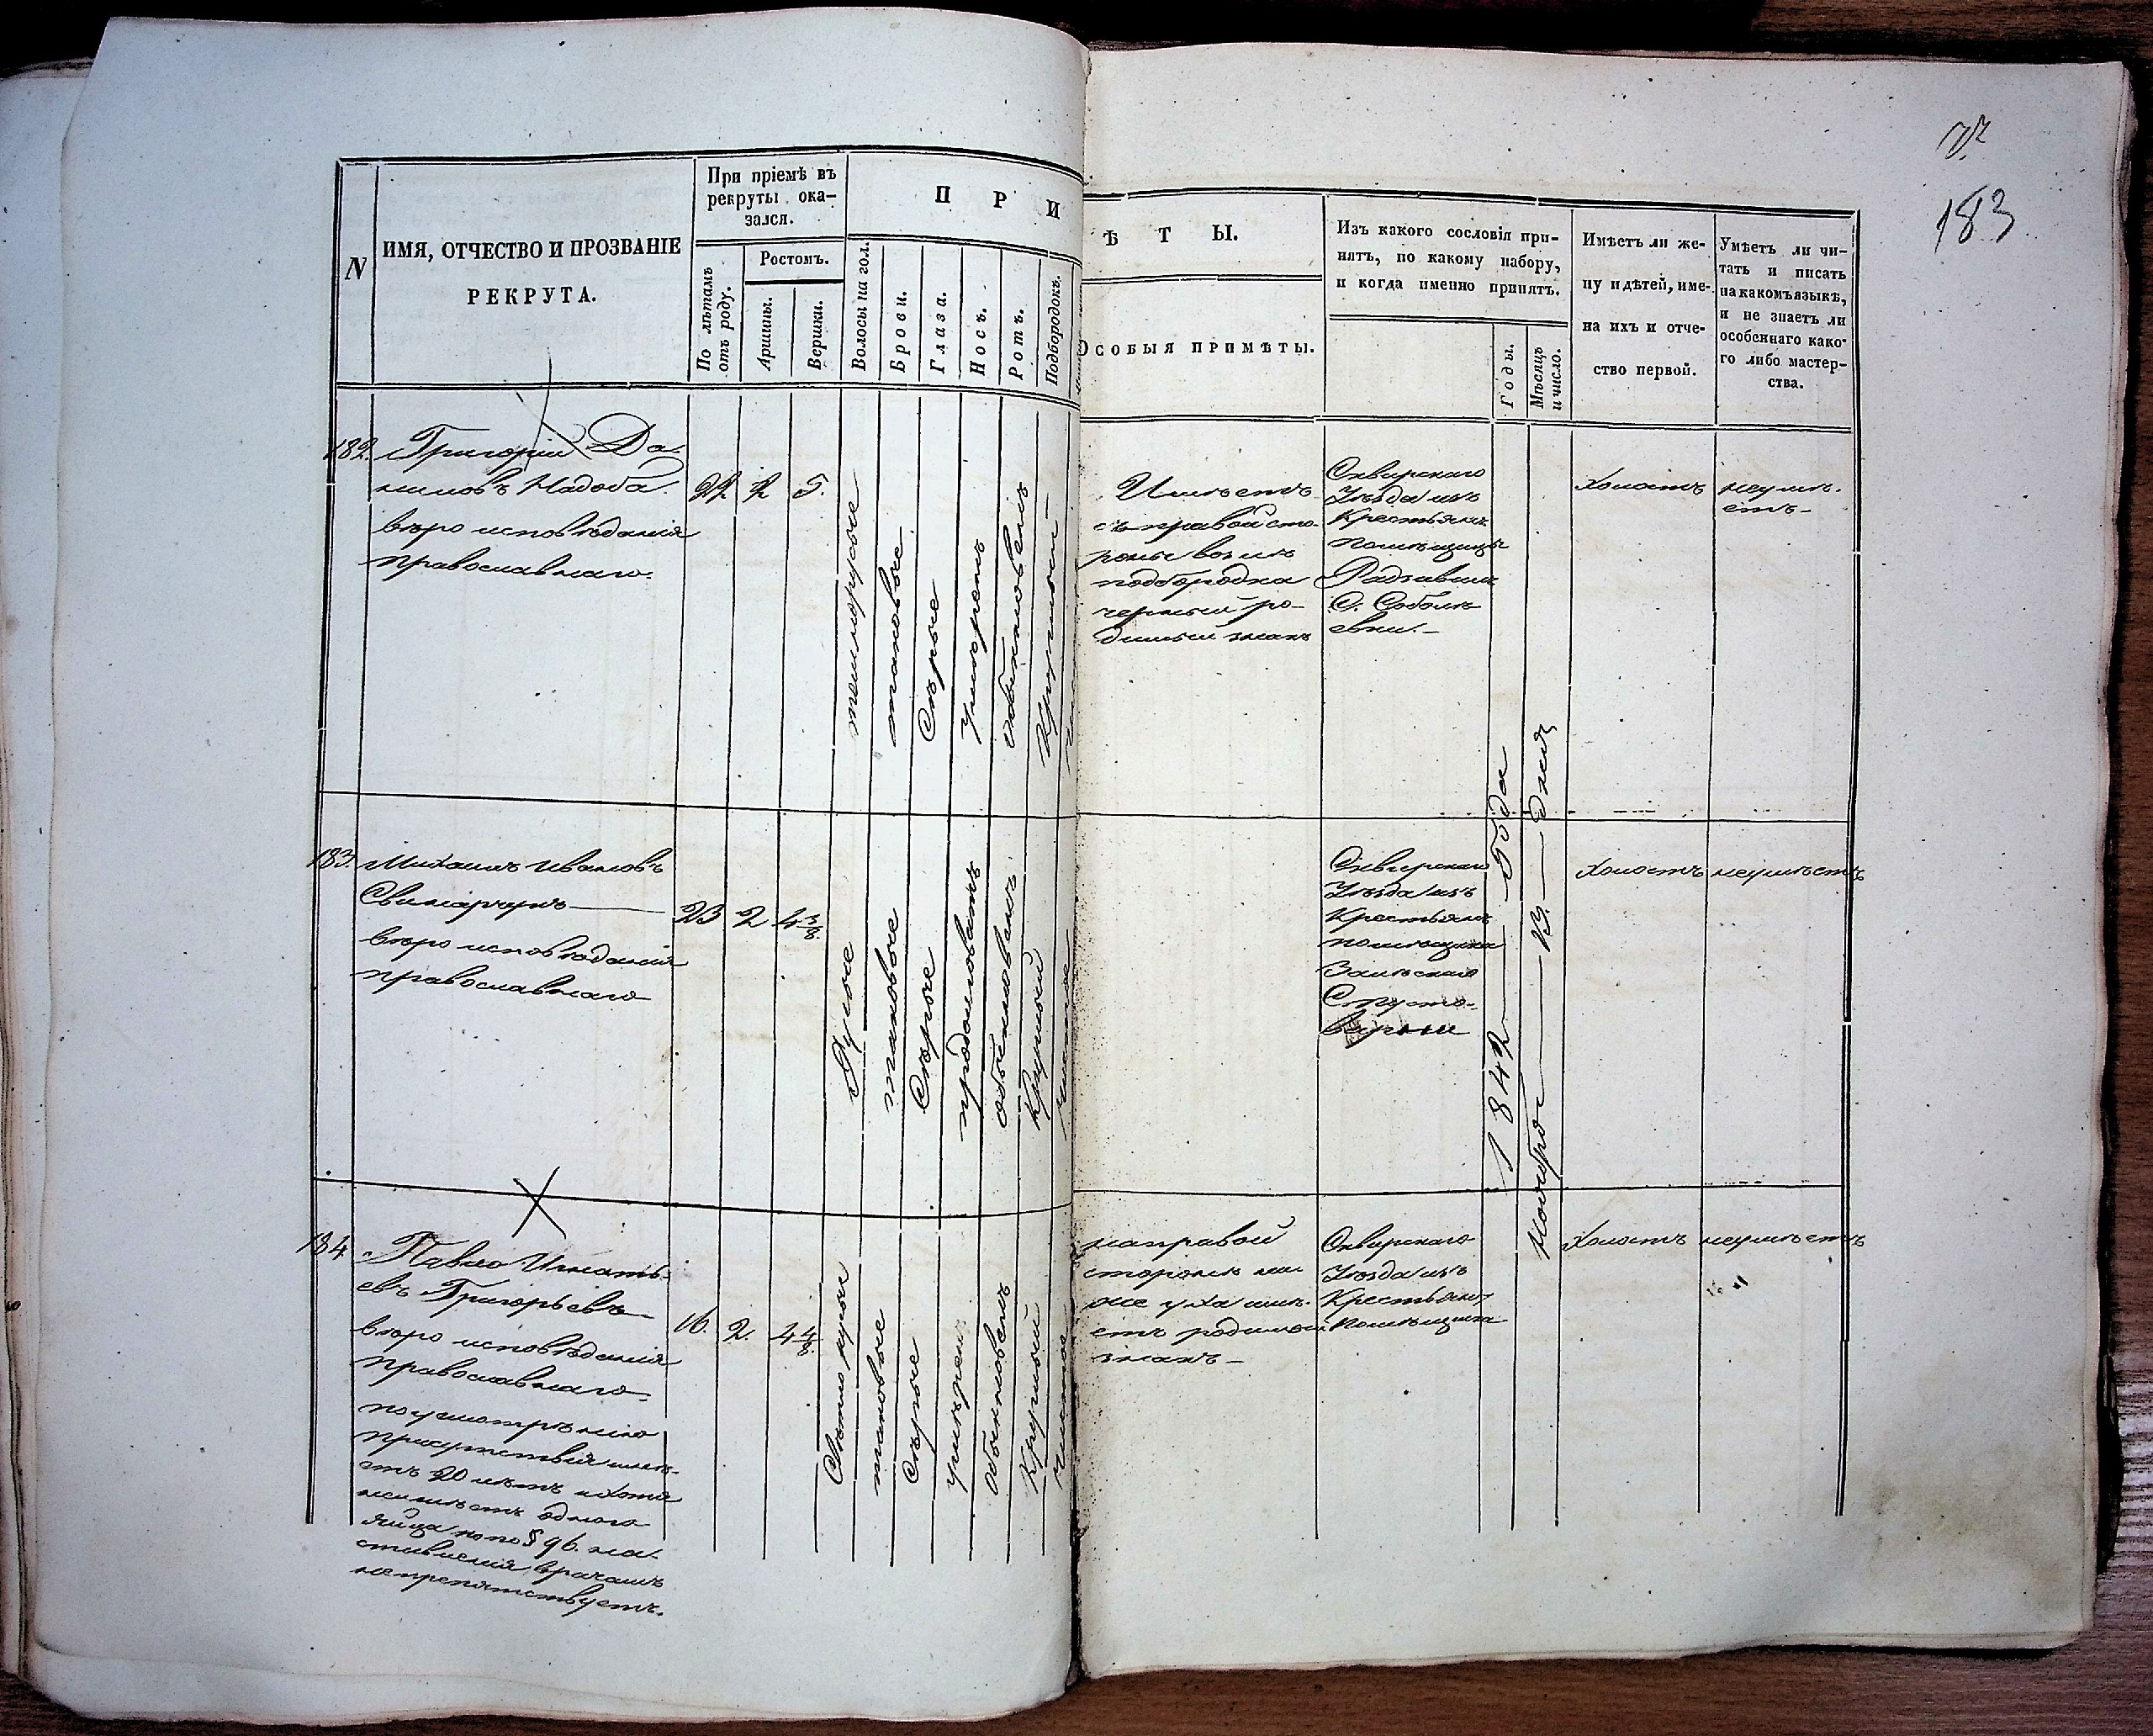 183
N
ИМЯ, ОТЧЕСТВО И ПРОЗВАНІЕ
РЕКРУТА.
При пріемѣ въ
рекруты ока-
зался.
По лѣтамъ
отъ роду.
Ростомъ.
Аршины.
Вершки.
П Р И
Волосы на гол.
Брови.
Глаза.
Носъ.
Ротъ.
Подбородокъ.
Ѣ Т Ы.
ОСОБЫЯ ПРИМѢТЫ.
Изъ какого сословія при-
нятъ, по какому набору,
и когда именно принятъ.
Годы.
Мѣсяцъ
и число.
Имѣетъ ли же-
ну и дѣтей, име-
на ихъ и отче-
ство первой.
Умѣетъ ли чи-
тать и писать
на какомъ языкѣ,
и не знаетъ ли
особеннаго како-
го либо мастер-
ства.
182.
Григорій Да-
ниловъ Надоба.
вѣро исповѣданія
православнаго.
22 2 5.
темнорусые
таковые
Сѣрые
Умѣренъ
обыкновенъ
Круглый
Имѣетъ
съ правой сто-
роны возлѣ
подбородка
черный ро-
димый знакъ
Сквирскаго
Уѣзда изъ
Крестьянъ
помѣщицы
С. Соболе
евки.
холостъ
неумѣ-
етъ
183.
Михаилъ Ивановъ
Свинарчукъ
вѣро исповѣданія
православнаго
23 2 4 3/8.
Русые
таковые
Сѣрые
продолговатъ
обыкновенъ
Круглый
чистое
Сквирскаго
Уѣзда изъ
Крестьянъ
помѣщика
Залѣскаго
1842 Года
Ноября 13 дня
холостъ
неумѣетъ
184.
Павло Игнать-
евъ Григорьевъ
вѣро исповѣданія
православнаго.
по усмотрѣнію
присутствія имѣ-
етъ 20 лѣтъ и хотя
неимѣетъ одного
яйца но по § 96. на-
ставленія врачамъ
непрепятствуетъ.
16. 2. 4 4/8.
Свѣтло русы
таковые
Сѣрые
умѣренъ
Обыкновенъ
Круглый
чистое
на правой
сторонѣ ни
же уха имѣ-
етъ родимый
знакъ
Сквирскаго
Уѣзда изъ
Крестьянъ
помѣщика
Холостъ
неумѣетъ